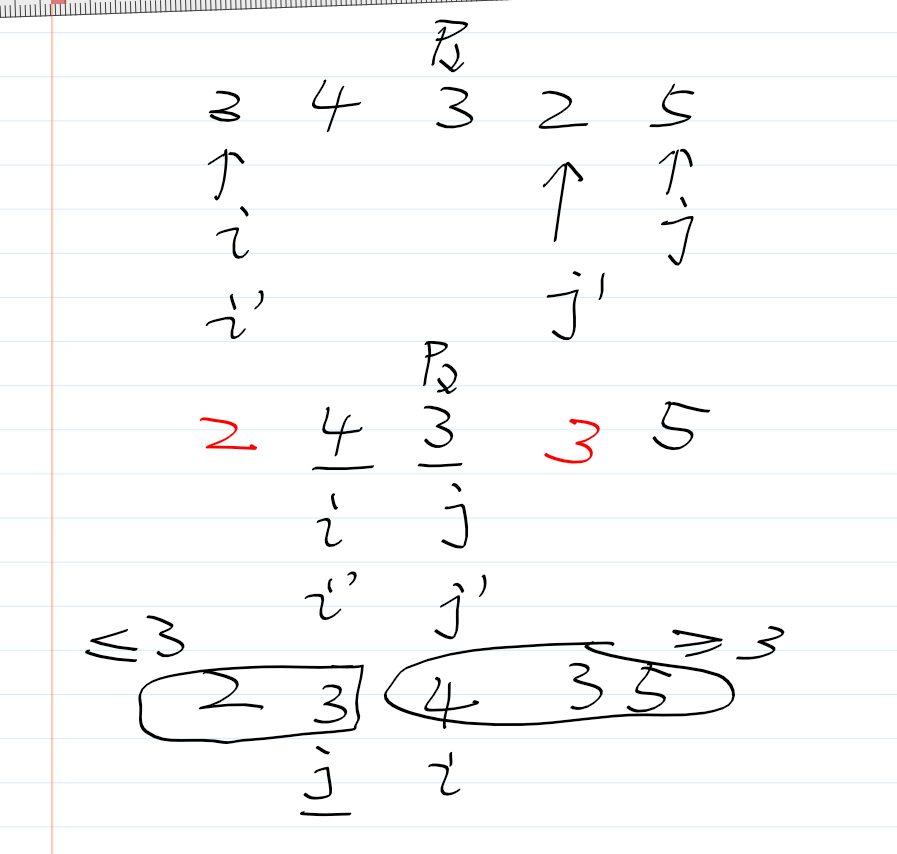 P2
3 4 3 2 5
↑ ↑ ↑
i j
i' j'
P2
2 4 3 3 5
i j
i' j'
≤3 ≥3
2 3 4 3 5
j i